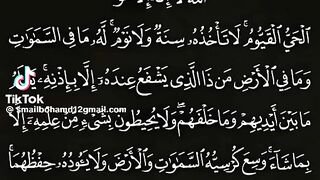 ٱلْحَىُّ ٱلْقَيُّومُ ۚ لَا تَأْخُذُهُۥ سِنَةٌ وَلَا نَوْمٌ ۚ لَّهُۥ مَا فِى ٱلسَّمَـٰوَٰتِ
وَمَا فِى ٱلْأَرْضِ ۗ مَن ذَا ٱلَّذِى يَشْفَعُ عِندَهُۥٓ إِلَّا بِإِذْنِهِۦ ۚ
TikTok
مَا بَيْنَ أَيْدِيهِمْ وَمَا خَلْفَهُمْ ۖ وَلَا يُحِيطُونَ بِشَىْءٍ مِّنْ عِلْمِهِۦٓ إِلَّا
@smailbohamd12gmail.com
بِمَا شَآءَ ۚ وَسِعَ كُرْسِيُّهُ ٱلسَّمَـٰوَٰتِ وَٱلْأَرْضَ ۖ وَلَا يَـُٔودُهُۥ حِفْظُهُمَا ۚ